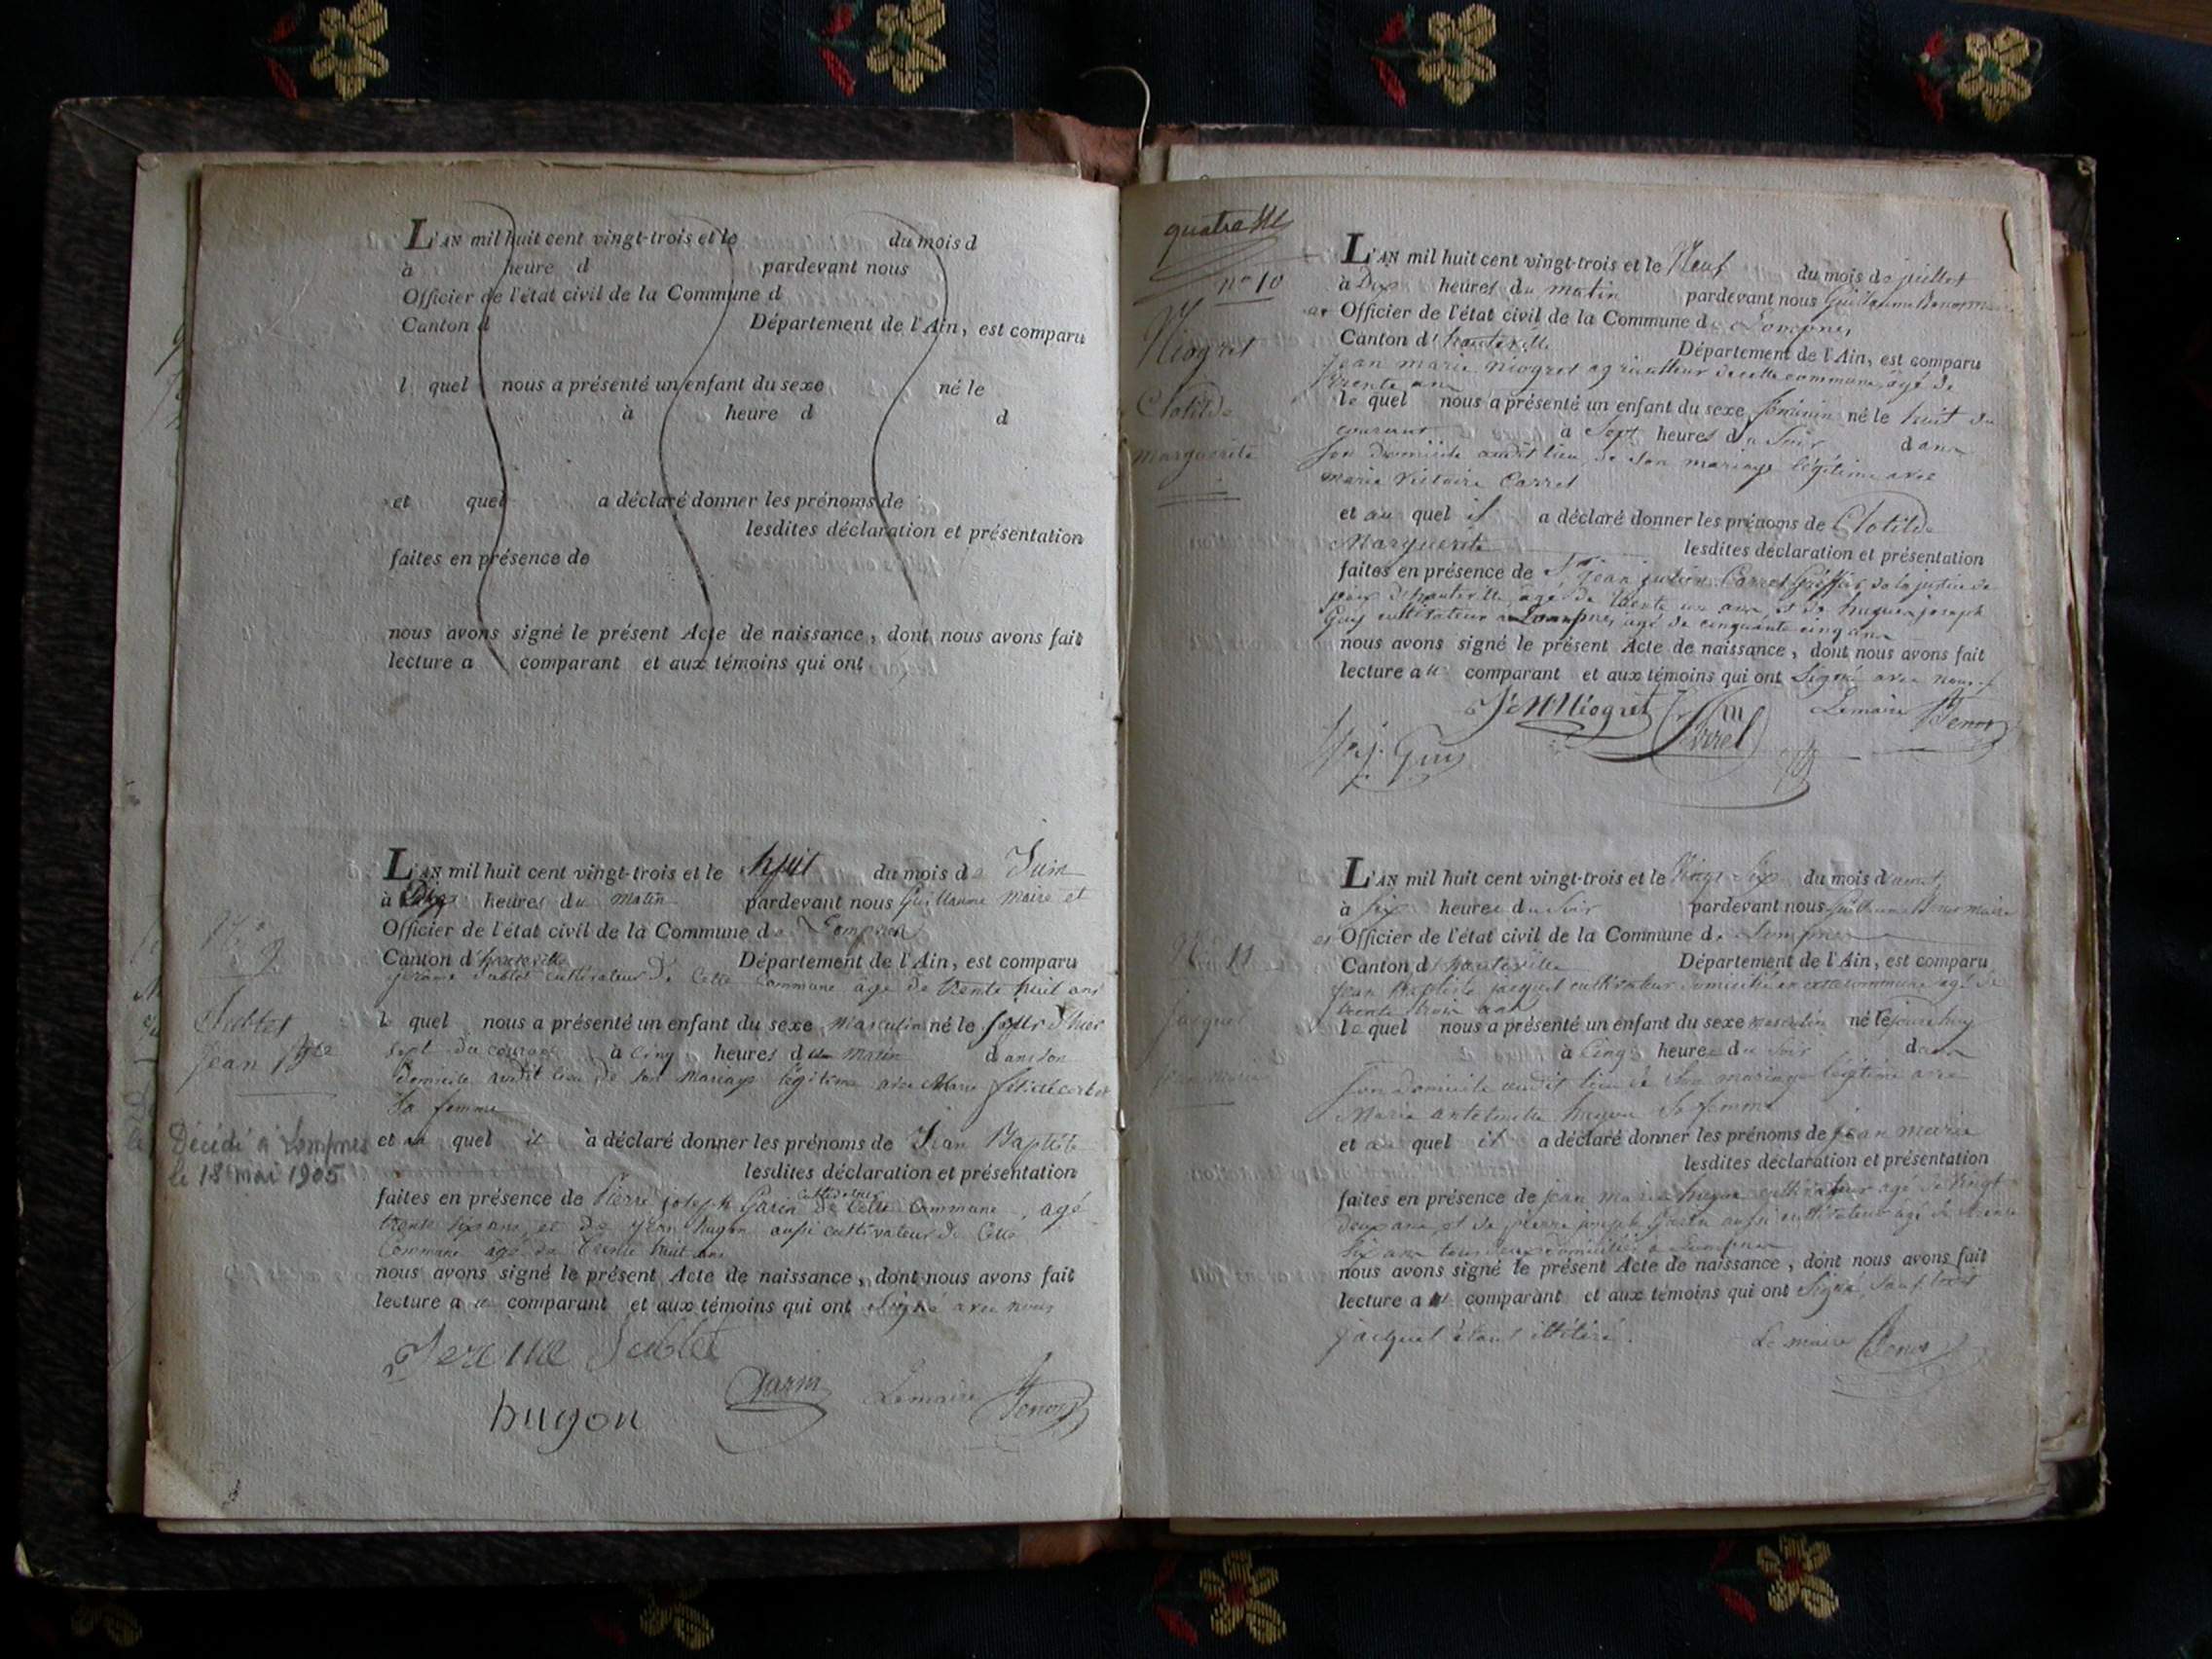 L'AN mil huit cent vingt-trois et le du mois d
à heure d pardevant nous
Officier de l'état civil de la Commune d
Canton d Département de l'Ain, est comparu
l quel nous a présenté un enfant du sexe né le
à heure d d
et quel a déclaré donner les prénoms de
lesdites déclaration et présentation
faites en présence de
nous avons signé le présent Acte de naissance, dont nous avons fait
lecture a comparant et aux témoins qui ont
L'AN mil huit cent vingt-trois et le huit du mois de Juin
à Dix heures du matin pardevant nous Guillaume maire et
Officier de l'état civil de la Commune de Lompnes
Canton d'hauteville Département de l'Ain, est comparu
Jérôme Sublet cultivateur de Cette Commune agé de trente huit ans
N° 9
Sublet
Jean Bte
le quel nous a présenté un enfant du sexe masculin né le jour d'hier
sept du courant à cinq heures du matin dans son
domicile audit lieu de son mariage légitime avec Marie
sa femme
Décédé à Lompnes
le 18 mai 1905
et au quel il a déclaré donner les prénoms de Jean Baptiste
lesdites déclaration et présentation
faites en présence de Pierre joseph Garin cultivateur de Cette Commune, agé
trente six ans et de jean hugon aussi cultivateur de Cette
Commune âgé de trente huit ans
nous avons signé le présent Acte de naissance, dont nous avons fait
lecture au comparant et aux témoins qui ont Signé avec nous
Jerome Sublet
Garin Lemaire Benoz
hugon
quatre
n° 10
Niogret
Clotilde
marguerite
L'AN mil huit cent vingt-trois et le Neuf du mois de juillet
à Dix heures du matin pardevant nous Guillaume Benoz
Officier de l'état civil de la Commune de Lompnes
Canton d'hauteville Département de l'Ain, est comparu
Jean marie Niogret agriculteur de cette commune, âgé de
trente ans
le quel nous a présenté un enfant du sexe féminin né le huit du
courant à Sept heures du Soir dans
son domicile audit lieu de son mariage légitime avec
marie victoire Carrel
et au quel il a déclaré donner les prénoms de Clotilde
Marguerite lesdites déclaration et présentation
faites en présence de Sr jean julien Carrel Greffier de la justice de
paix d'hauteville, agé de trente un ans et de hugues joseph
Guy cultivateur a Lompnes agé de cinquante cinq ans
nous avons signé le présent Acte de naissance, dont nous avons fait
lecture au comparant et aux témoins qui ont Signé avec nous
Niogret Carrel Lemaire Benoz
h. j. Guy
N° 11
jacquet
jean marie
L'AN mil huit cent vingt-trois et le Vingt Six du mois d'aout
à Six heures du Soir pardevant nous Guillaume Benoz maire
et Officier de l'état civil de la Commune de Lompnes
Canton d'hauteville Département de l'Ain, est comparu
Jean Baptiste jacquet cultivateur domicilié en cette commune agé de
trente trois ans
le quel nous a présenté un enfant du sexe masculin né le jourd'huy
à Cinq heures du Soir dans
son domicile audit lieu de Son mariage légitime avec
Marie antoinette hugon Sa femme
et au quel il a déclaré donner les prénoms de jean marie
lesdites déclaration et présentation
faites en présence de jean marie hugon cultivateur agé de vingt
deux ans, et de pierre joseph Garin aussi cultivateur agé de trente
Six ans tous deux domiciliés a Lompnes
nous avons signé le présent Acte de naissance, dont nous avons fait
lecture au comparant et aux témoins qui ont Signé, sauf
jacquet étant illétéré. Le maire Benoz